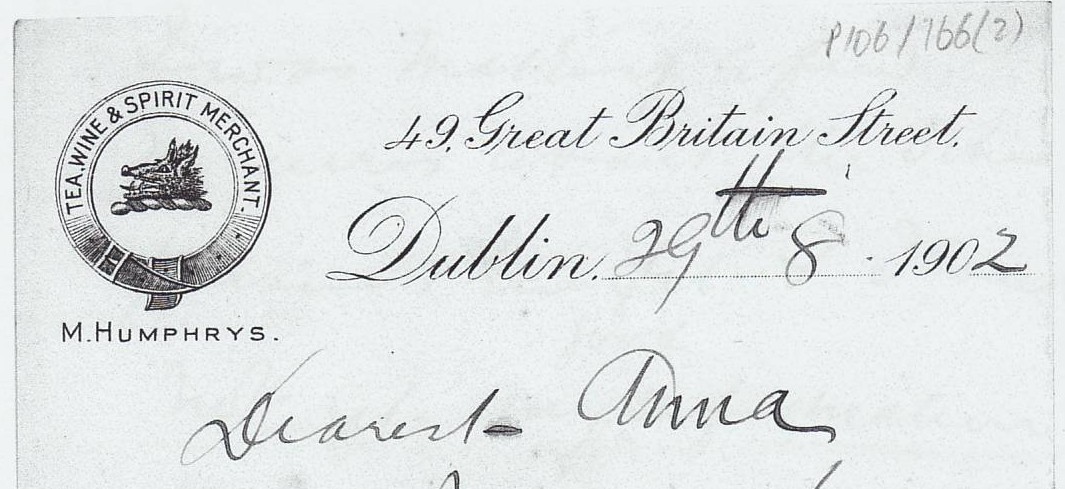 P106/766(2)
TEA. WINE & SPIRIT MERCHANT.
49, Great Britain Street.
Dublin. 29th 8 . 1902
M. HUMPHRYS.
Dearest Anna